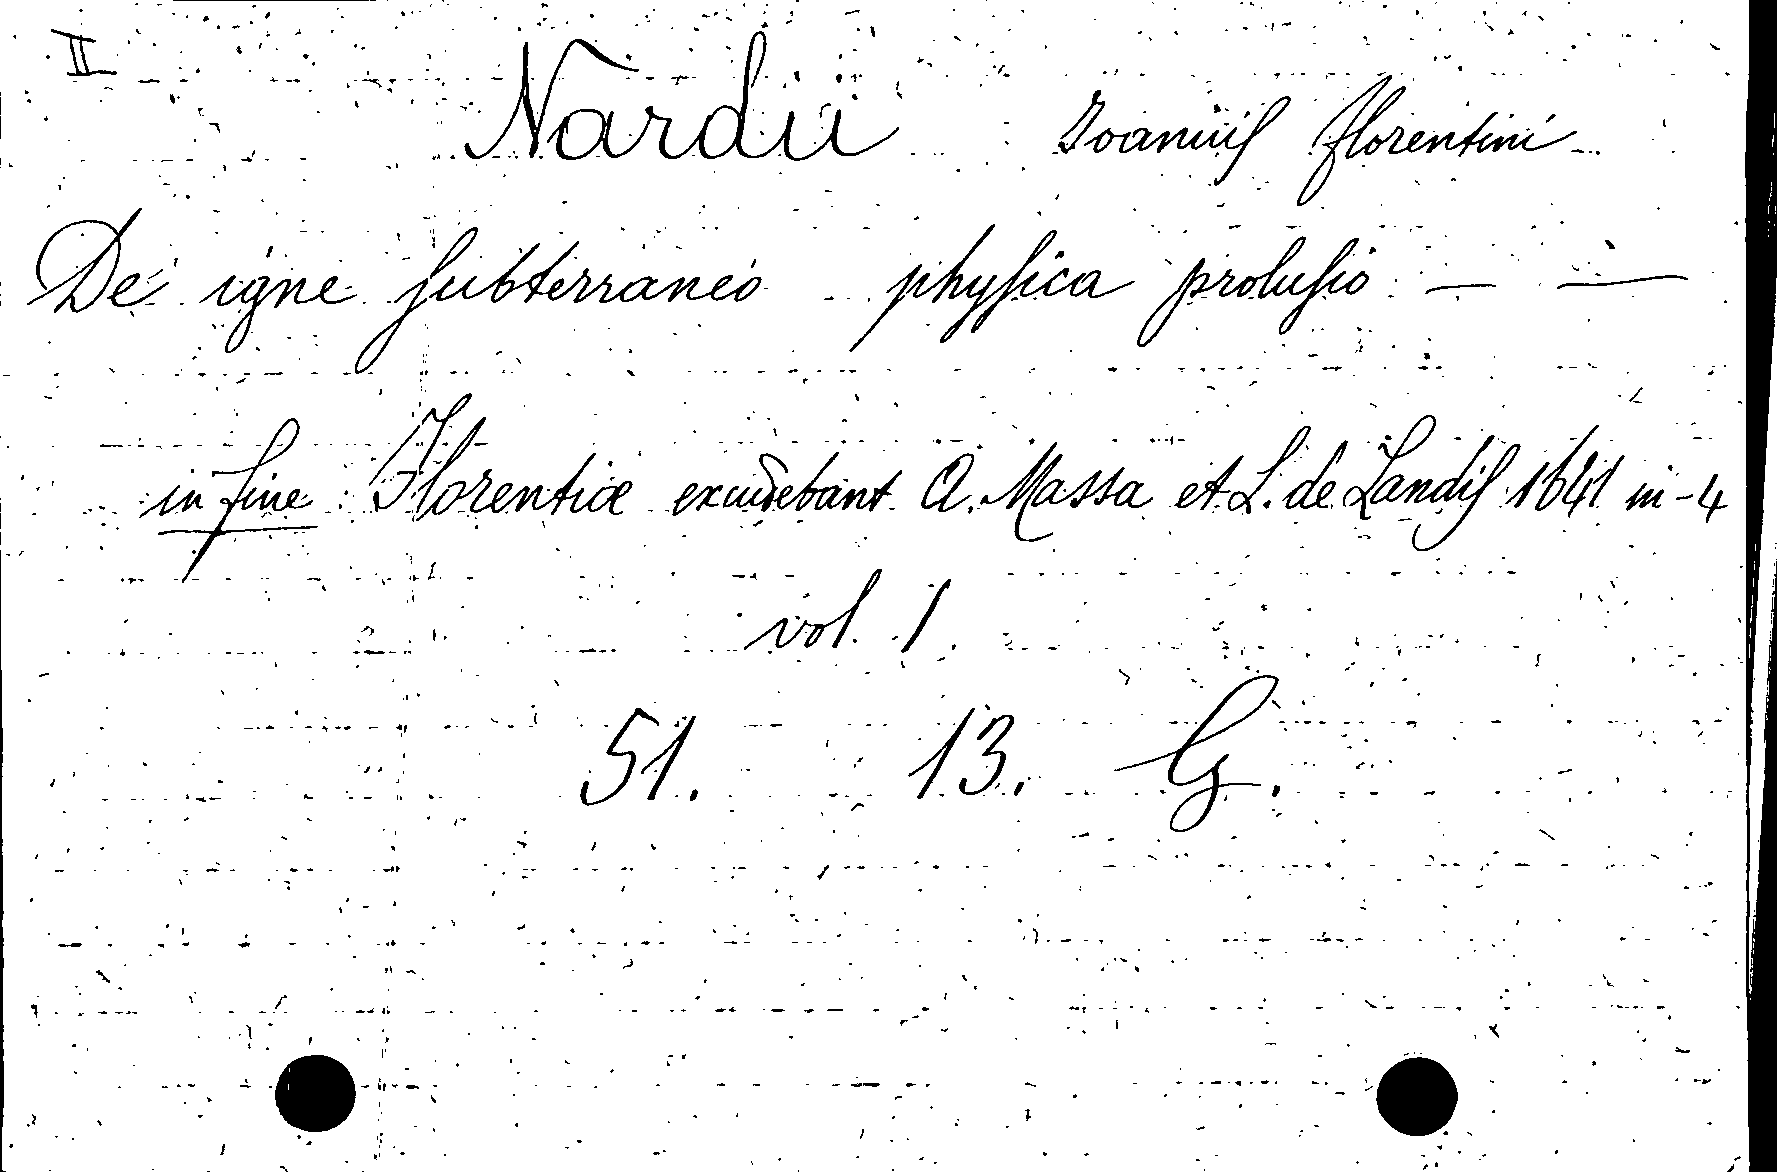 II
Nardii Ioannis florentini
De igne subterraneo physica prolusio — —
in fine Florentiæ excudebant A. Massa et L. de Landis 1641 in-4
vol. 1
51. 13. G.